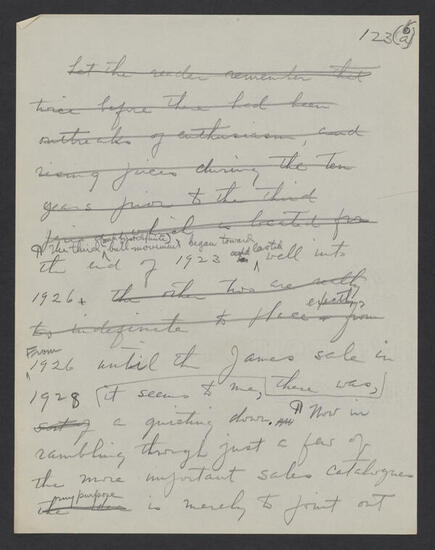 123(a)
Let the reader remember that
twice before there had been
outbreaks of enthusiasm, and
rising prices during the ten
years prior to the third
which is located from
¶ The third bull movement began toward
the end of 1923 and lasted well into
1926 + the other two are really
to indefinite to place exactly + from
From
1926 until the James sale in
1928 (it seems to me, there was,)
sort of a quieting down. ¶ Now in
rambling through just a few of
the more important sales catalogues
my purpose
the is merely to point out